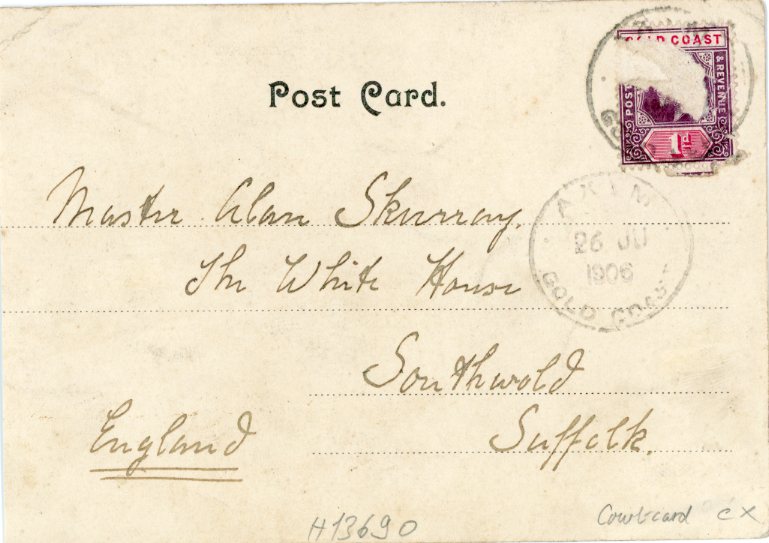 GOLD COAST
POST
& REVENUE
1D
Post Card.
AXIM
26 JU
1906
GOLD COAST
Master Alan Skurray.
The White House
Southwold
Suffolk.
England
H13690
Court card cx